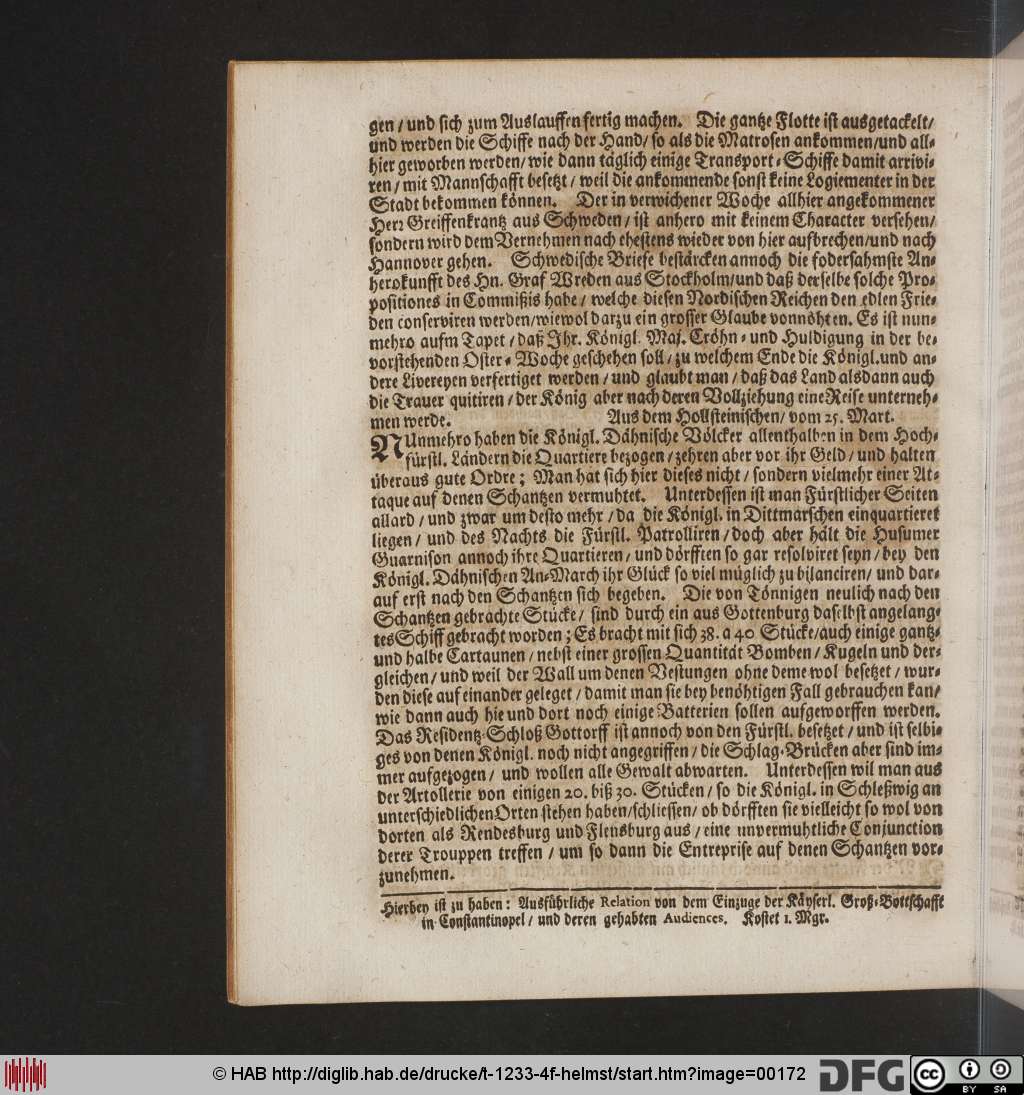 gen / und sich zum Auslauffen fertig machen. Die gantze Flotte ist ausgetackelt/
und werden die Schiffe nach der Hand/ so als die Matrosen ankommen/und all-
hier geworben werden/ wie dann täglich einige Transport-Schiffe damit arrivi-
ren / mit Mannschafft besetzt / weil die ankommende sonst keine Logiementer in der
Stadt bekommen können. Der in verwichener Woche allhier angekommener
Herr Greiffenkrantz aus Schweden / ist anhero mit keinem Character versehen/
sondern wird dem Vernehmen nach ehestens wieder von hier aufbrechen/und nach
Hannover gehen. Schwedische Briefe bestärcken annoch die fodersahmste An-
herokunfft des Hn. Graf Wreden aus Stockholm/und daß derselbe solche Pro-
positiones in Commißis habe / welche diesen Nordischen Reichen den edlen Frie-
den conserviren werden/wiewol darzu ein grosser Glaube vonnöhten. Es ist nun-
mehro aufm Tapet / daß Ihr. Königl. Maj. Cröhn- und Huldigung in der be-
vorstehenden Oster-Woche geschehen soll / zu welchem Ende die Königl.und an-
dere Livereyen verfertiget werden / und glaubt man / daß das Land alsdann auch
die Trauer quitiren / der König aber nach deren Vollziehung eine Reise unterneh-
men werde. Aus dem Hollsteinischen/ vom 25. Mart.
NUnmehro haben die Königl. Dähnische Völcker allenthalben in dem Hoch-
fürstl. Ländern die Quartiere bezogen / zehren aber vor ihr Geld / und halten
überaus gute Ordre; Man hat sich hier dieses nicht / sondern vielmehr einer At-
taque auf denen Schantzen vermuhtet. Unterdessen ist man Fürstlicher Seiten
allard / und zwar um desto mehr / da die Königl. in Dittmarschen einquartieret
liegen / und des Nachts die Fürstl. Patrolliren / doch aber hält die Husumer
Guarnison annoch ihre Quartieren / und dörfften so gar resolviret seyn / bey den
Königl. Dähnischen An-March ihr Glück so viel müglich zu bilanciren/ und dar-
auf erst nach den Schantzen sich begeben. Die von Tönnigen neulich nach den
Schantzen gebrachte Stücke / sind durch ein aus Gottenburg daselbst angelang-
tes Schiff gebracht worden; Es bracht mit sich 38. a 40 Stücke/auch einige gantz-
und halbe Cartaunen / nebst einer grossen Quantität Bomben / Kugeln und der-
gleichen / und weil der Wall um denen Vestungen ohne deme wol besetzet / wur-
den diese auf einander geleget / damit man sie bey benöhtigen Fall gebrauchen kan/
wie dann auch hie und dort noch einige Batterien sollen aufgeworffen werden.
Das Residentz-Schloß Gottorff ist annoch von den Fürstl. besetzet / und ist selbi-
ges von denen Königl. noch nicht angegriffen / die Schlag-Brücken aber sind im-
mer aufgezogen / und wollen alle Gewalt abwarten. Unterdessen wil man aus
der Artollerie von einigen 20. biß 30. Stücken / so die Königl. in Schleßwig an
unterschiedlichen Orten stehen haben/schliessen/ ob dörfften sie vielleicht so wol von
dorten als Rendesburg und Flensburg aus / eine unvermuhtliche Conjunction
derer Trouppen treffen / um so dann die Entreprise auf denen Schantzen vor-
zunehmen.
Hierbey ist zu haben: Ausführliche Relation von dem Einzuge der Käyserl. Groß-Bottschafft
in Constantinopel / und deren gehabten Audiences. Kostet 1. Mgr.
© HAB http://diglib.hab.de/drucke/t-1233-4f-helmst/start.htm?image=00172
DFG
CC BY SA